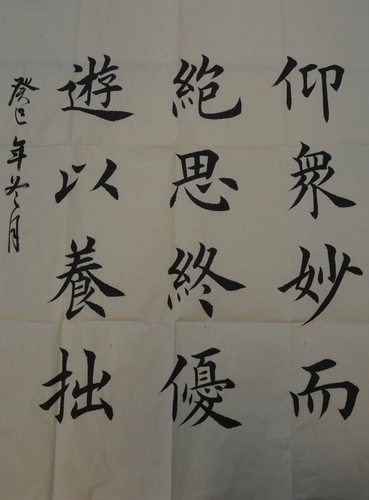 仰衆妙而
絶思終優
遊以養拙
癸巳年冬月